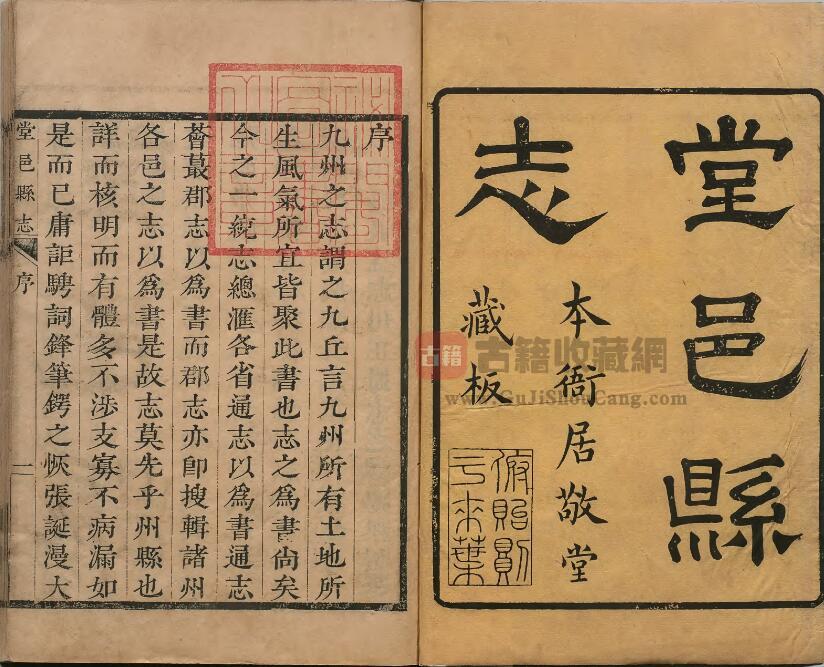 堂邑縣
志
本衙居敬堂
藏板
序
九州之志謂之九丘言九州所有土地所
生風氣所宜皆聚此書也志之為書尚矣
今之一統志總滙各省通志以為書通志
薈蕞郡志以為書而郡志亦卽搜輯諸州
各邑之志以為書是故志莫先乎州縣也
詳而核明而有體多不涉支寡不病漏如
是而已庸詎騁詞鋒筆鍔之恢張誕漫大
堂邑縣志 序 二
古籍 古籍收藏網
www.GuJiShouCang.com